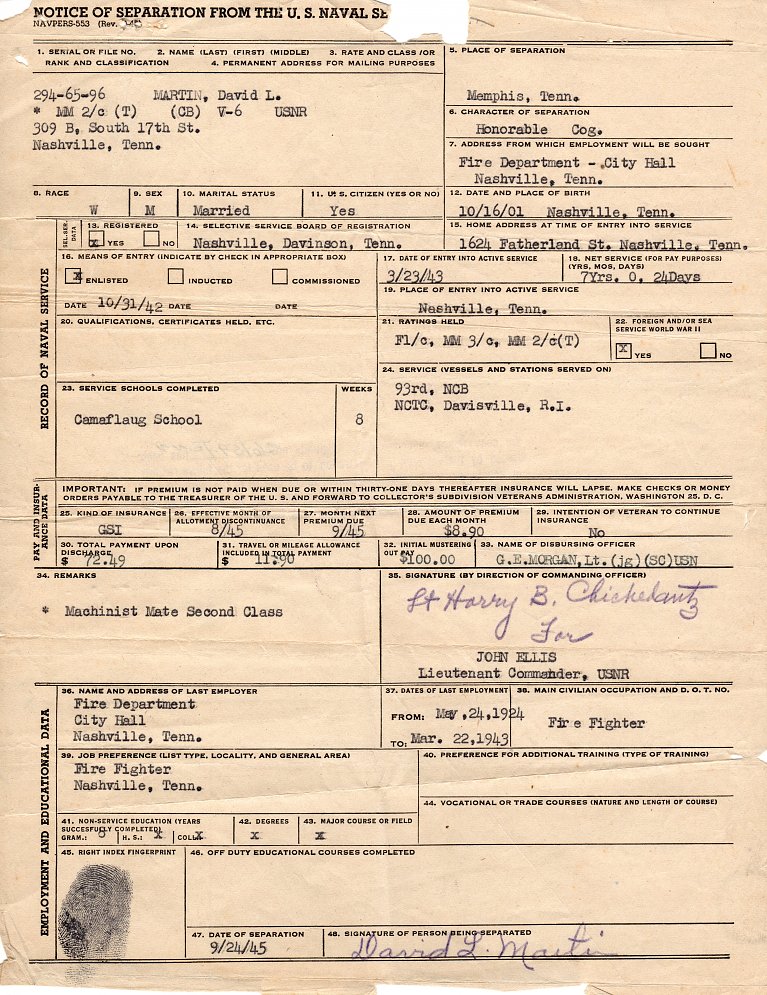 NOTICE OF SEPARATION FROM THE U. S. NAVAL SE
NAVPERS-553 (Rev.
1. SERIAL OR FILE NO. 2. NAME (LAST) (FIRST) (MIDDLE) 3. RATE AND CLASS /OR
RANK AND CLASSIFICATION 4. PERMANENT ADDRESS FOR MAILING PURPOSES
294-65-96 MARTIN, David L.
* MM 2/c (T) (CB) V-6 USNR
309 B, South 17th St.
Nashville, Tenn.
5. PLACE OF SEPARATION
Memphis, Tenn.
6. CHARACTER OF SEPARATION
Honorable Cog.
7. ADDRESS FROM WHICH EMPLOYMENT WILL BE SOUGHT
Fire Department - City Hall
Nashville, Tenn.
8. RACE
W
9. SEX
M
10. MARITAL STATUS
Married
11. U. S. CITIZEN (YES OR NO)
Yes
12. DATE AND PLACE OF BIRTH
10/16/01 Nashville, Tenn.
SEL. SER. DATA
13. REGISTERED
x YES NO
14. SELECTIVE SERVICE BOARD OF REGISTRATION
Nashville, Davinson, Tenn.
15. HOME ADDRESS AT TIME OF ENTRY INTO SERVICE
1624 Fatherland St. Nashville, Tenn.
RECORD OF NAVAL SERVICE
16. MEANS OF ENTRY (INDICATE BY CHECK IN APPROPRIATE BOX)
x ENLISTED INDUCTED COMMISSIONED
DATE 10/31/42 DATE DATE
17. DATE OF ENTRY INTO ACTIVE SERVICE
3/23/43
18. NET SERVICE (FOR PAY PURPOSES)
(YRS, MOS, DAYS)
7Yrs. 0, 24Days
19. PLACE OF ENTRY INTO ACTIVE SERVICE
Nashville, Tenn.
20. QUALIFICATIONS, CERTIFICATES HELD, ETC.
21. RATINGS HELD
F1/c, MM 3/c, MM 2/c(T)
22. FOREIGN AND/OR SEA
SERVICE WORLD WAR II
x YES NO
23. SERVICE SCHOOLS COMPLETED
WEEKS
Camaflaug School
8
24. SERVICE (VESSELS AND STATIONS SERVED ON)
93rd, NCB
NCTC, Davisville, R.I.
PAY AND INSURANCE DATA
IMPORTANT: IF PREMIUM IS NOT PAID WHEN DUE OR WITHIN THIRTY-ONE DAYS THEREAFTER INSURANCE WILL LAPSE. MAKE CHECKS OR MONEY
ORDERS PAYABLE TO THE TREASURER OF THE U. S. AND FORWARD TO COLLECTOR'S SUBDIVISION VETERANS ADMINISTRATION, WASHINGTON 25, D. C.
25. KIND OF INSURANCE
GSI
26. EFFECTIVE MONTH OF
ALLOTMENT DISCONTINUANCE
8/45
27. MONTH NEXT
PREMIUM DUE
9/45
28. AMOUNT OF PREMIUM
DUE EACH MONTH
$8.90
29. INTENTION OF VETERAN TO CONTINUE
INSURANCE
No
30. TOTAL PAYMENT UPON
DISCHARGE
$ 72.49
31. TRAVEL OR MILEAGE ALLOWANCE
INCLUDED IN TOTAL PAYMENT
$ 11.90
32. INITIAL MUSTERING
OUT PAY
$100.00
33. NAME OF DISBURSING OFFICER
G.E.MORGAN,Lt.(jg)(SC)USN
34. REMARKS
* Machinist Mate Second Class
35. SIGNATURE (BY DIRECTION OF COMMANDING OFFICER)
Lt Harry B. Chickedantz
For
JOHN ELLIS
Lieutenant Commander, USNR
EMPLOYMENT AND EDUCATIONAL DATA
36. NAME AND ADDRESS OF LAST EMPLOYER
Fire Department
City Hall
Nashville, Tenn.
37. DATES OF LAST EMPLOYMENT
FROM: May,24,1924
TO: Mar. 22,1943
38. MAIN CIVILIAN OCCUPATION AND D. O. T. NO.
Fire Fighter
39. JOB PREFERENCE (LIST TYPE, LOCALITY, AND GENERAL AREA)
Fire Fighter
Nashville, Tenn.
40. PREFERENCE FOR ADDITIONAL TRAINING (TYPE OF TRAINING)
41. NON-SERVICE EDUCATION (YEARS
SUCCESFULLY COMPLETED)
GRAM.: 8 H. S.: x COLL. x
42. DEGREES
x
43. MAJOR COURSE OR FIELD
x
44. VOCATIONAL OR TRADE COURSES (NATURE AND LENGTH OF COURSE)
45. RIGHT INDEX FINGERPRINT
46. OFF DUTY EDUCATIONAL COURSES COMPLETED
47. DATE OF SEPARATION
9/24/45
48. SIGNATURE OF PERSON BEING SEPARATED
David L. Martin